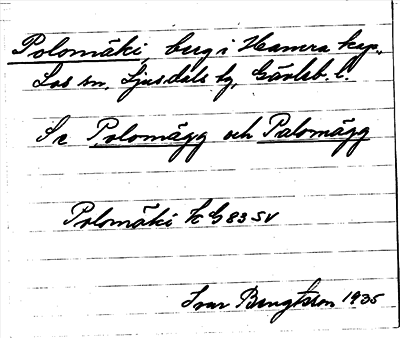 Polomäki, berg i Hamra kap.
Los sn, Ljusdals tg, Gävleb. l.
Se Polomägg och Palomägg
Polomäki K G 83 SV
Ivar Bengtsson 1935